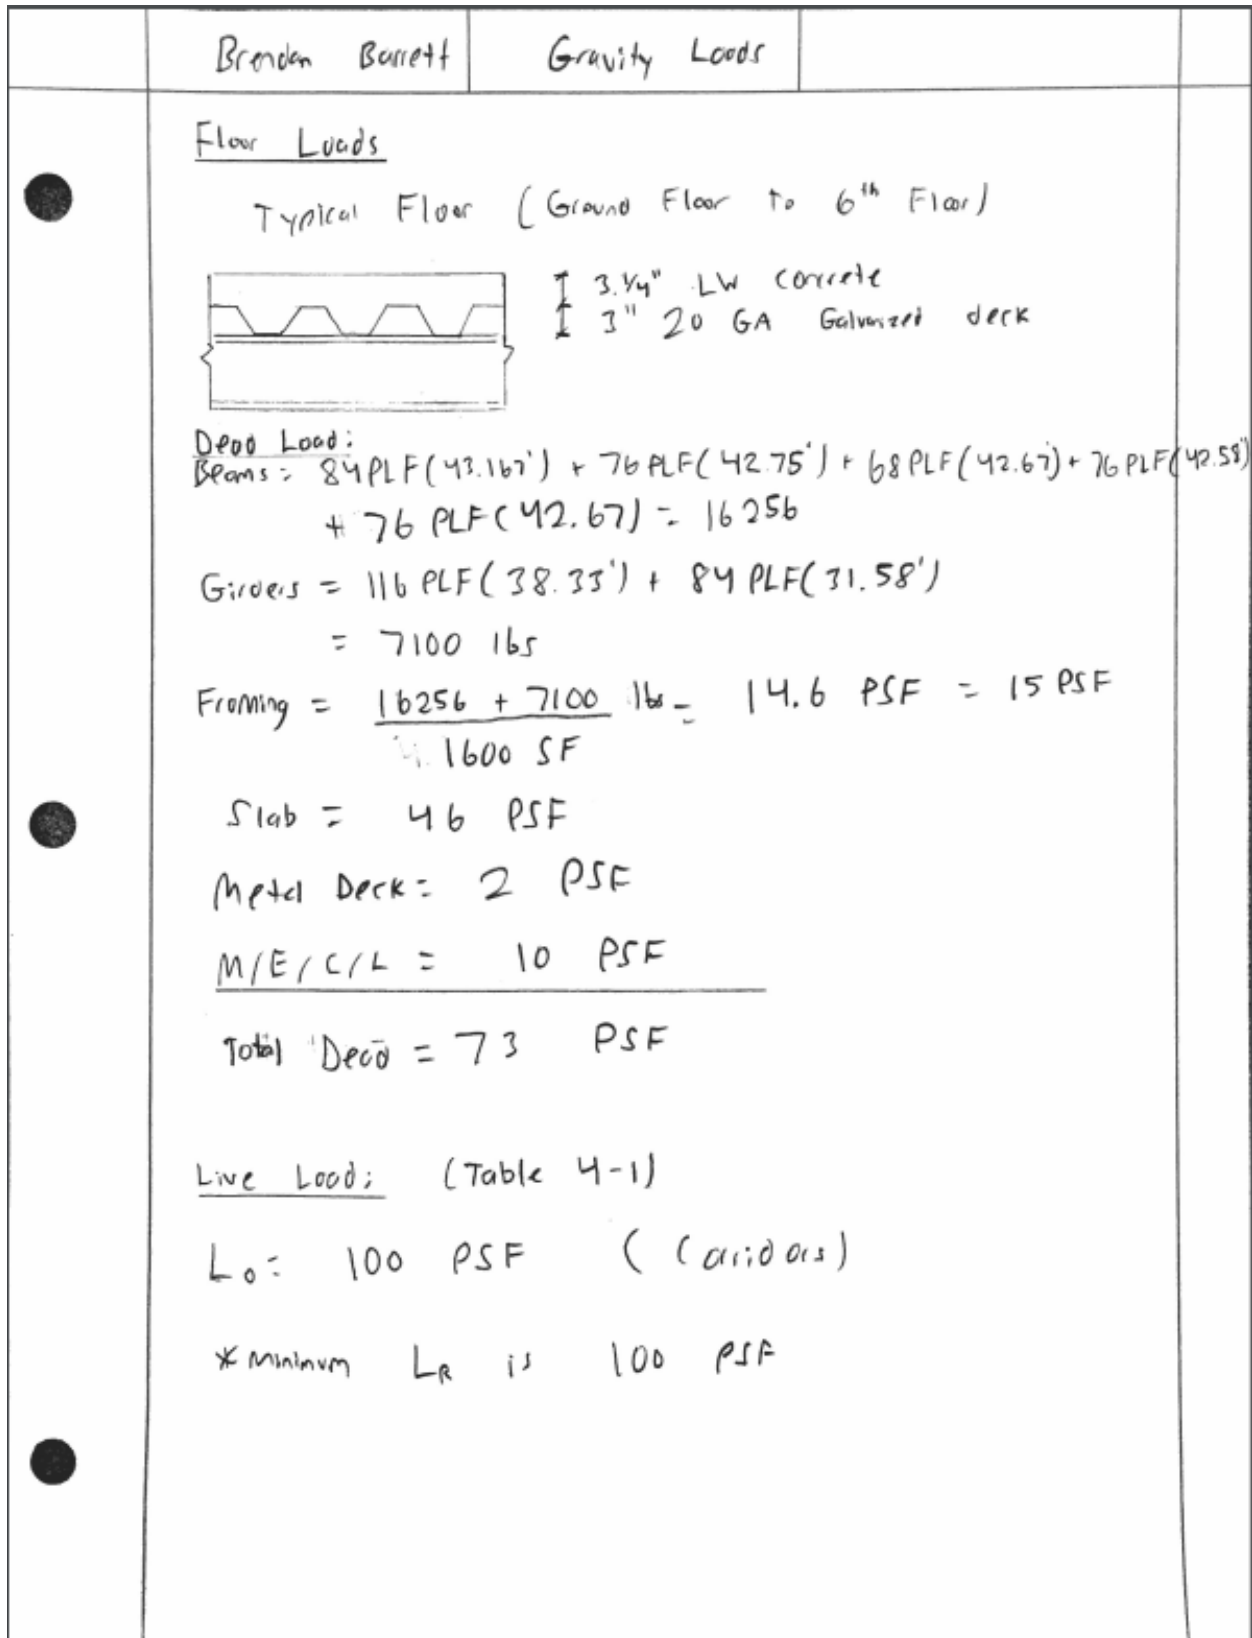 Brendan Barrett Gravity Loads
Floor Loads
Typical Floor (Ground Floor to 6th Floor)
3.1/4" LW concrete
3" 20 GA Galvanized deck
Dead Load:
Beams: 84 PLF(43.167') + 76 PLF(42.75') + 68 PLF(42.67) + 76 PLF(42.58')
+ 76 PLF(42.67) = 16256
Girders = 116 PLF(38.33') + 84 PLF(31.58')
= 7100 lbs
Framing = 16256 + 7100 lbs = 14.6 PSF = 15 PSF
1600 SF
Slab = 46 PSF
Metal Deck = 2 PSF
M/E/C/L = 10 PSF
Total Dead = 73 PSF
Live Load: (Table 4-1)
Lo = 100 PSF (Corridors)
*Minimum LR is 100 PSF